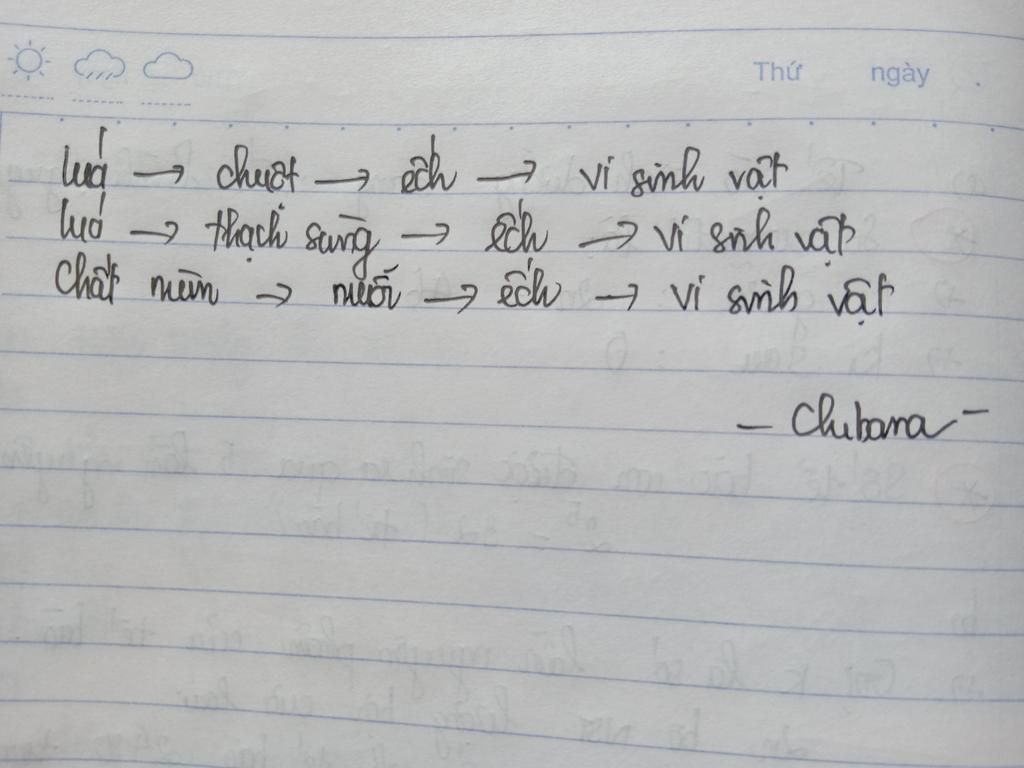 Thứ ngày .
luá → chuột → ếch → vi sinh vật
luá → thạch sùng → ếch → vi sinh vật
Chất mùn → muỗi → ếch → vi sinh vật
- Chubana -